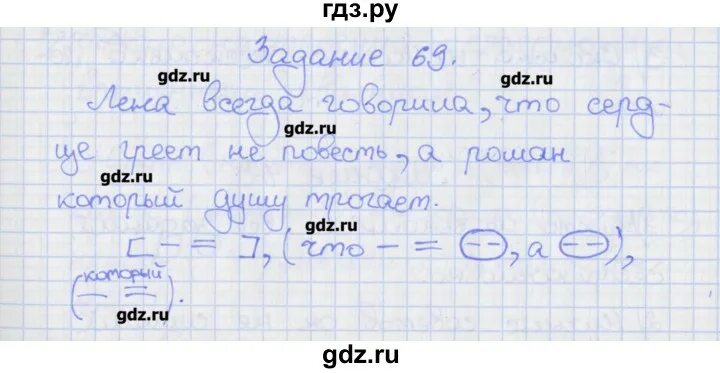 гдз.ру
Задание 69.
gdz.ru
gdz.ru
Лена всегда говорила, что серд-
gdz.ru
це греет не повесть, а роман
gdz.ru
который душу трогает.
gdz.ru
[ – = ], (что – = (– –), а (– –)),
(который – =).
gdz.ru
gdz.ru